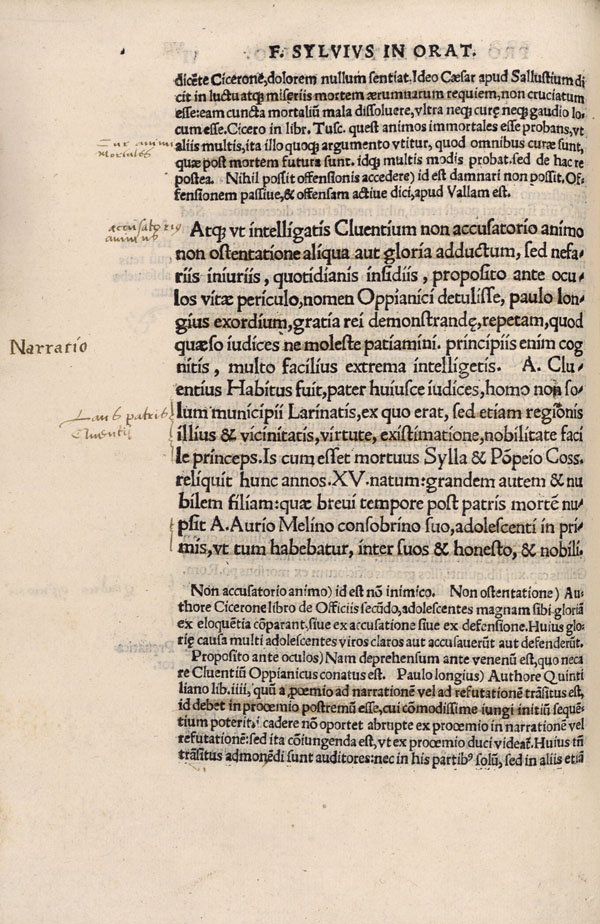 F. SYLVIVS IN ORAT.
dicẽte Cicerone, dolorem nullum sentiat. Ideo Cæsar apud Sallustium di
cit in luctu atq; miseriis mortem ærumnarum requiem, non cruciatum
esse: eam cuncta mortaliũ mala dissoluere, vltra neq; curę neq; gaudio lo-
cum esse. Cicero in libr. Tusc. quæst animos immortales esse probans, vt
Cur animi
aliis multis, ita illo quoq; argumento vtitur, quod omnibus curæ sunt,
quæ post mortem futura sunt. idq; multis modis probat. sed de hac re
postea. Nihil possit offensionis accedere) id est damnari non possit. Of-
fensionem passiue, & offensam actiue dici, apud Vallam est.
accusatorio
animus
Atq; vt intelligatis Cluentium non accusatorio animo
non ostentatione aliqua aut gloria adductum, sed nefa-
riis iniuriis, quotidianis insidiis, proposito ante ocu-
los vitæ periculo, nomen Oppianici detulisse, paulo lon-
gius exordium, gratia rei demonstrandę, repetam, quod
Narratio
quæso iudices ne moleste patiamini. principiis enim cog
nitis, multo facilius extrema intelligetis. A. Clu-
entius Habitus fuit, pater huiusce iudices, homo non so-
Laus patris
Cluentij
lum municipii Larinatis, ex quo erat, sed etiam regionis
illius & vicinitatis, virtute, existimatione, nobilitate faci
le princeps. Is cum esset mortuus Sylla & Põpeio Coss.
reliquit hunc annos. XV. natum: grandem autem & nu
bilem filiam: quæ breui tempore post patris mortẽ nu-
psit A. Aurio Melino consobrino suo, adolescenti in pri-
mis, vt tum habebatur, inter suos & honesto, & nobili.
Non accusatorio animo) id est nõ inimico. Non ostentatione) Au-
thore Cicerone libro de Officiis secũdo, adolescentes magnam sibi gloriã
ex eloquẽtia cõparant, siue ex accusatione siue ex defensione. Huius glo-
rię causa multi adolescentes viros claros aut accusauerũt aut defenderũt.
Proposito ante oculos) Nam deprehensum ante venenũ est, quo neca
re Cluentiũ Oppianicus conatus est. Paulo longius) Authore Quinti
liano lib. iiii, quũ a procemio ad narrationẽ vel ad refutationẽ trãsitus est,
id debet in procemio postremũ esse, cui cõmodissime iungi initiũ sequẽ-
tium poterit. cadere nõ oportet abrupte ex procemio in narrationẽ vel
refutationẽ: sed ita cõiungenda est, vt ex procemio duci videat̃. Huius tñ
trãsitus admonẽdi sunt auditores: nec in his partib⁹ solũ, sed in aliis etiã